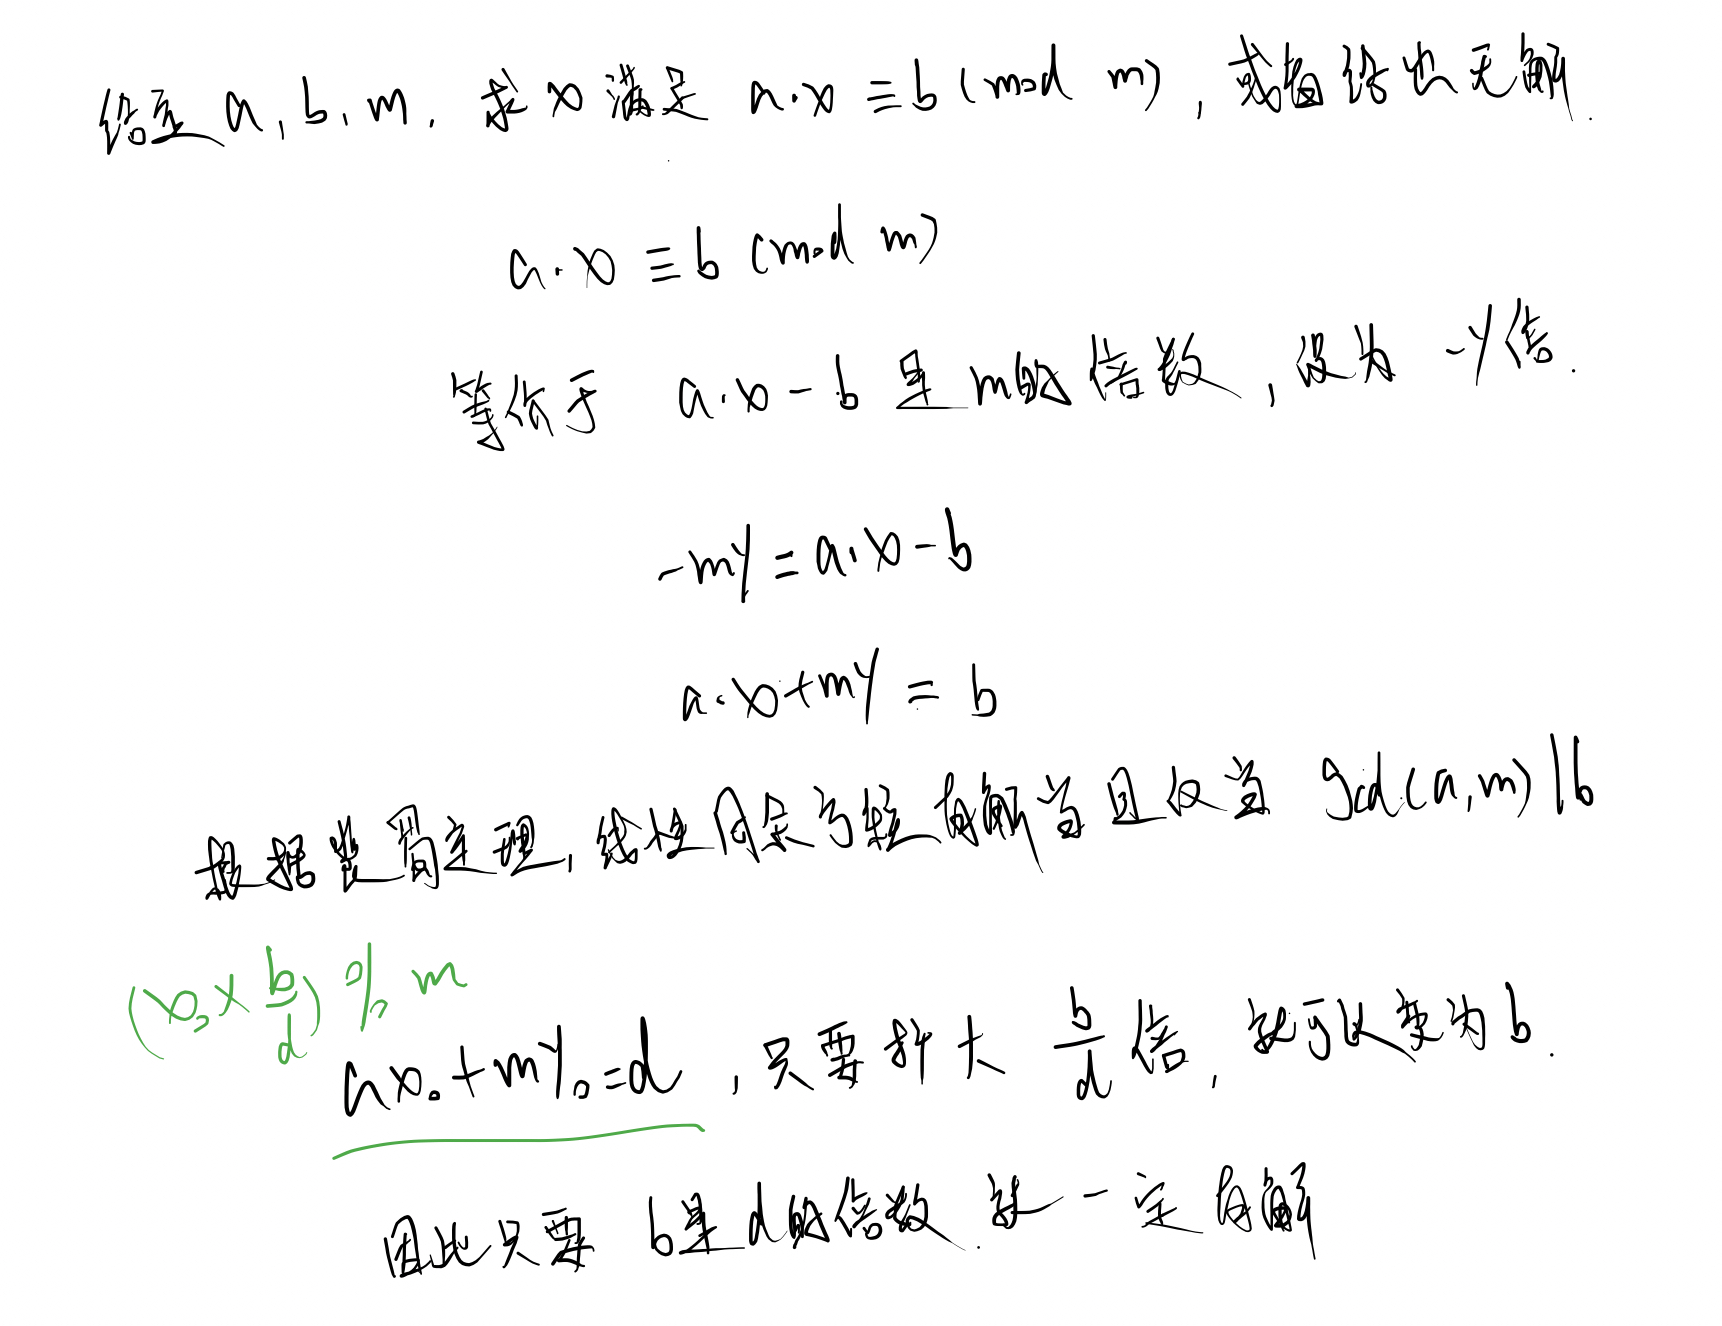 给定 a, b, m, 求 x 满足 a·x ≡ b (mod m), 或者给出无解.
a·x ≡ b (mod m)
等价于 a·x - b 是 m的倍数, 设为 -y倍.
-my = a·x - b
a·x + my = b
根据裴蜀定理, 线性同余方程有解当且仅当 gcd(a, m) | b
(x₀ × b/d) % m
ax₀ + my₀ = d, 只要扩大 b/d 倍, 就可以变为 b.
因此只要 b是 d的倍数. 就一定有解